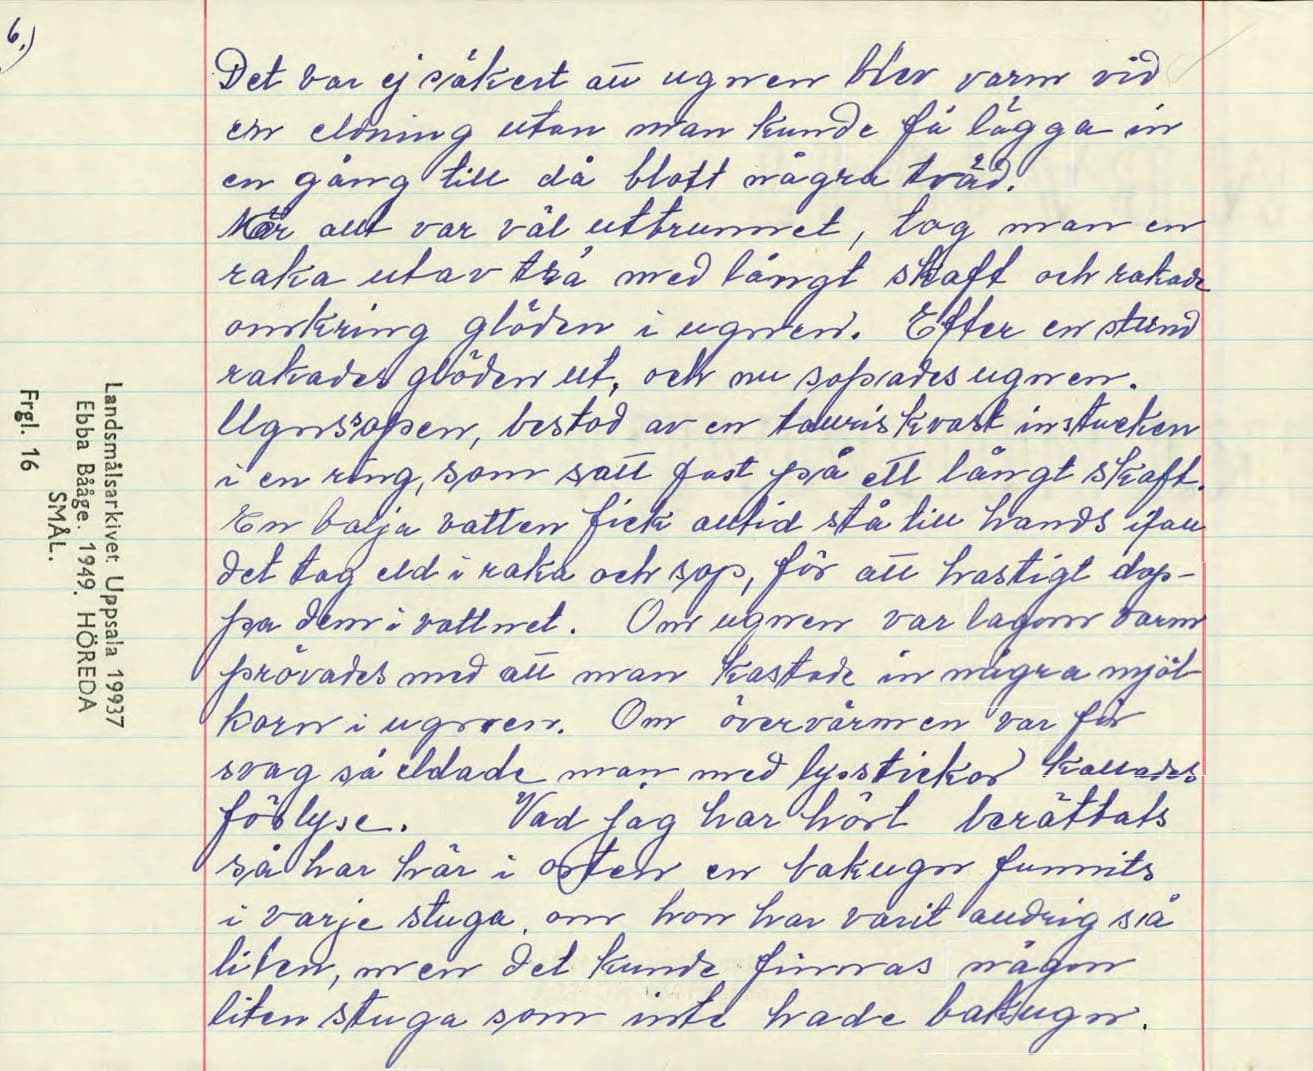 6.)
Det var ej säkert att ugnen blev varm vid
en eldning utan man kunde få lägga in
en gång till då blott några träd.
När allt var väl utbrunnet, tog man en
raka utav trä med långt skaft och rakade
omkring glöden i ugnen. Efter en stund
rakades glöden ut, och nu sopades ugnen.
Ugnssopen, bestod av en tallriskvast instucken
i en ring, som satt fast på ett långt skaft.
En balja vatten fick alltid stå till hands ifall
det tog eld i raka och sop, för att hastigt dop-
pa dem i vattnet. Om ugnen var lagom varm
prövades med att man kastade in några mjöl
korn i ugnen. Om övervärmen var för
svag så eldade man med lysstickor kallades
förlyse. Vad jag har hört berättats
så har här i orten en bakugn funnits
i varje stuga, om hon har varit aldrig så
liten, men det kunde finnas någon
liten stuga som inte hade bakugn.
Landsmålsarkivet Uppsala 19937
Ebba Bååge. 1949. HÖREDA
SMÅL.
Frgl. 16